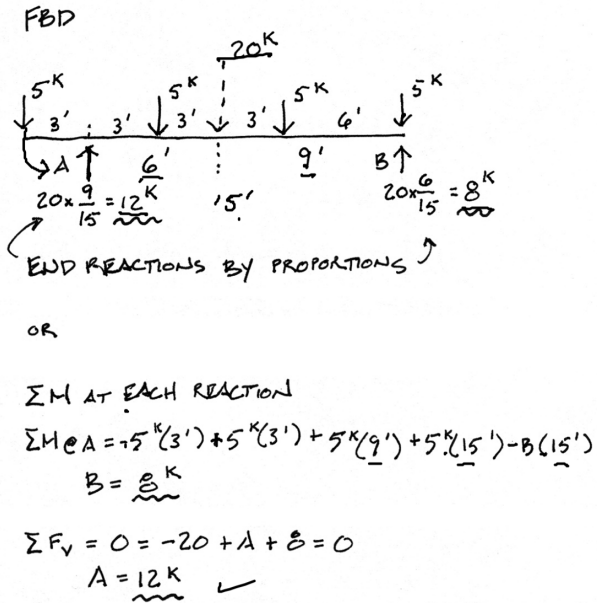 FBD
20ᴷ
5ᴷ 5ᴷ 5ᴷ 5ᴷ
3' 3' 3' 3' 6'
A 6' 9' B
20 x 9/15 = 12ᴷ 15' 20x 6/15 = 8ᴷ
END REACTIONS BY PROPORTIONS
OR
ΣM AT EACH REACTION
ΣM@A = -5ᴷ(3') + 5ᴷ(3') + 5ᴷ(9') + 5ᴷ(15') - B(15')
B = 8ᴷ
ΣFᵥ = 0 = -20 + A + 8 = 0
A = 12ᴷ ✓